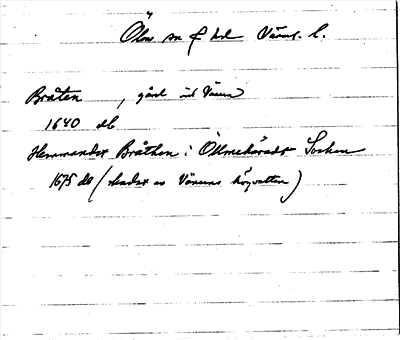 Ölme sn f hd Värml. l.
Bråten, gård vid Vänern
1640 db
Hemmandet Bråthen i Öllmeherads Sochen
1675 db (skadat av Vänerns högvatten)